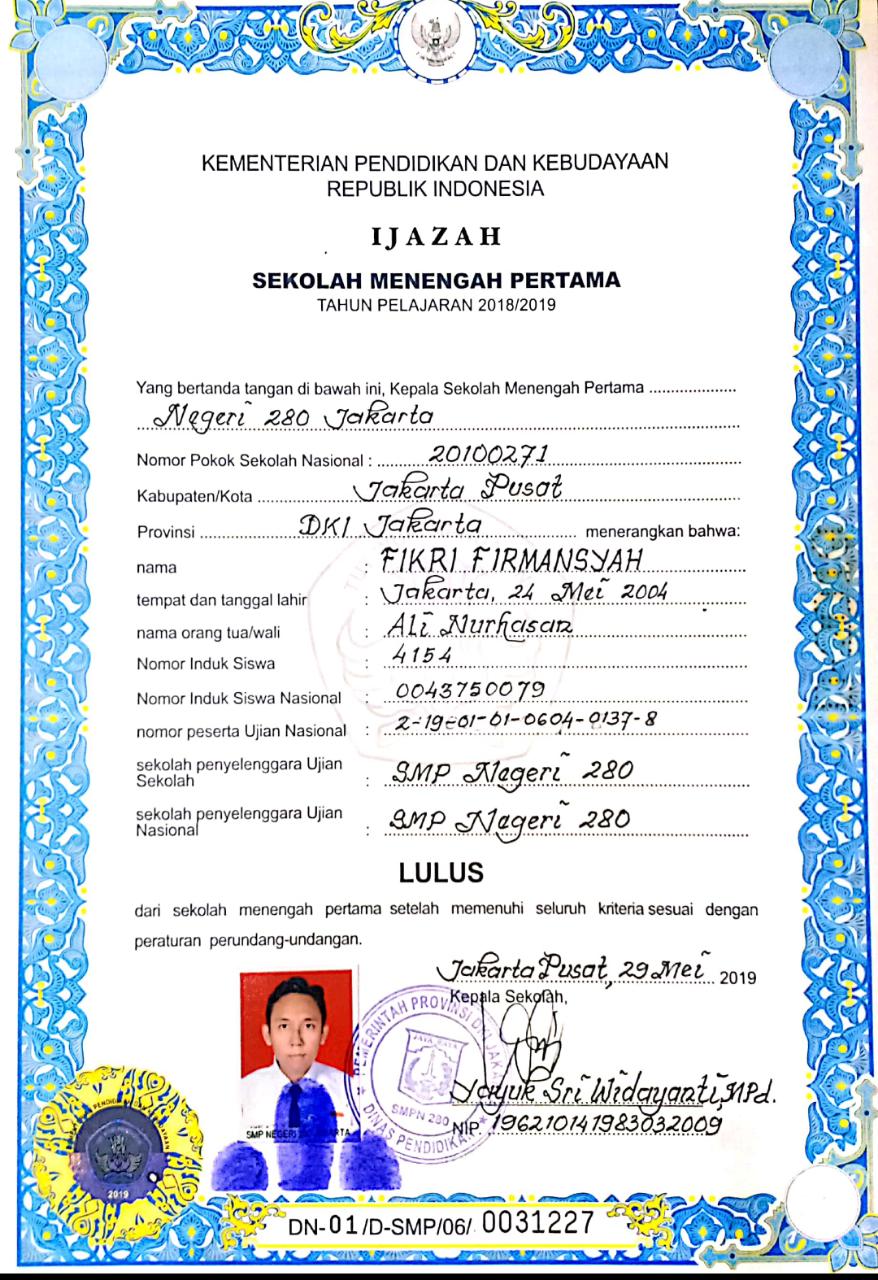 KEMENTERIAN PENDIDIKAN DAN KEBUDAYAAN
REPUBLIK INDONESIA
IJAZAH
SEKOLAH MENENGAH PERTAMA
TAHUN PELAJARAN 2018/2019
Yang bertanda tangan di bawah ini, Kepala Sekolah Menengah Pertama ....................
Negeri 280 Jakarta
Nomor Pokok Sekolah Nasional : 20100271
Kabupaten/Kota Jakarta Pusat
Provinsi DKI Jakarta menerangkan bahwa:
nama : FIKRI FIRMANSYAH
tempat dan tanggal lahir : Jakarta, 24 Mei 2004
nama orang tua/wali : Ali Nurhasan
Nomor Induk Siswa : 4154
Nomor Induk Siswa Nasional : 0043750079
nomor peserta Ujian Nasional : 2-19-01-01-0604-0137-8
sekolah penyelenggara Ujian
Sekolah : SMP Negeri 280
sekolah penyelenggara Ujian
Nasional : SMP Negeri 280
LULUS
dari sekolah menengah pertama setelah memenuhi seluruh kriteria sesuai dengan
peraturan perundang-undangan.
Jakarta Pusat, 29 Mei 2019
Kepala Sekolah,
PEMERINTAH PROVINSI DKI JAKARTA
JAYA RAYA
SMPN 280
DINAS PENDIDIKAN
Yayuk Sri Widayanti, MPd.
NIP. 196210141983032009
SMP NEGERI
2019
DN-01/D-SMP/06/ 0031227